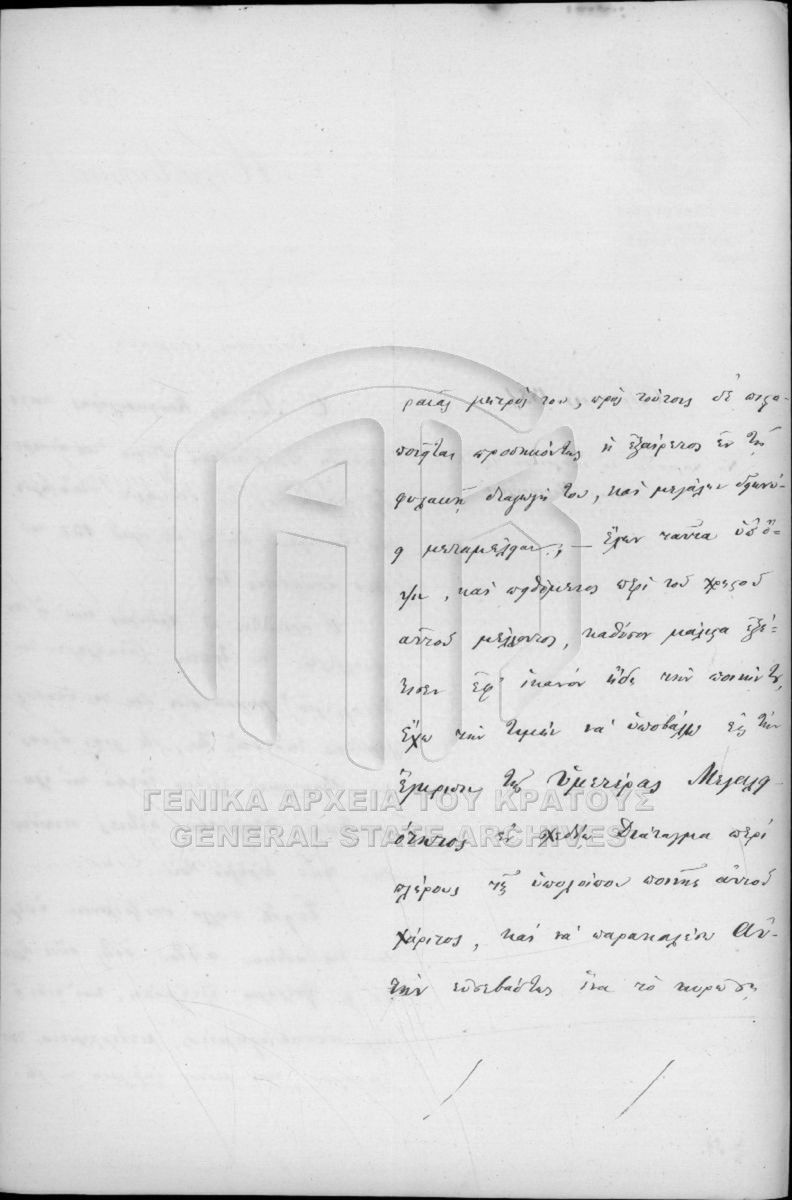 ραιᾶς μητρός του, πρὸς τούτοις δὲ πιστο-
ποιεῖται προσηκόντως ἡ ἐξαίρετος ἐν τῇ
φυλακῇ διαγωγή του, καὶ μεγάλην
μεταμέλειαν, — ἔχων ταῦτα ὑπ' ὄ-
ψιν, καὶ πειθόμενος περὶ τοῦ χρηστοῦ
αὐτοῦ μέλλοντος, καθόσον μάλιστα ἐξέ-
τισεν ἐφ' ἱκανὸν ἤδη τὴν ποινήν του,
ἔχω τὴν τιμὴν νὰ ὑποβάλω εἰς τὴν
ἔγκρισιν τῆς Ὑμετέρας Μεγαλει-
ότητος ἓν σχέδιον Διάταγμα περὶ
πλήρους τῆς ὑπολοίπου ποινῆς αὐτοῦ
χάριτος, καὶ νὰ παρακαλέσω Αὐ-
τὴν εὐσεβάστως ἵνα τὸ κυρώσῃ
ΓΕΝΙΚΑ ΑΡΧΕΙΑ ΤΟΥ ΚΡΑΤΟΥΣ
GENERAL STATE ARCHIVES